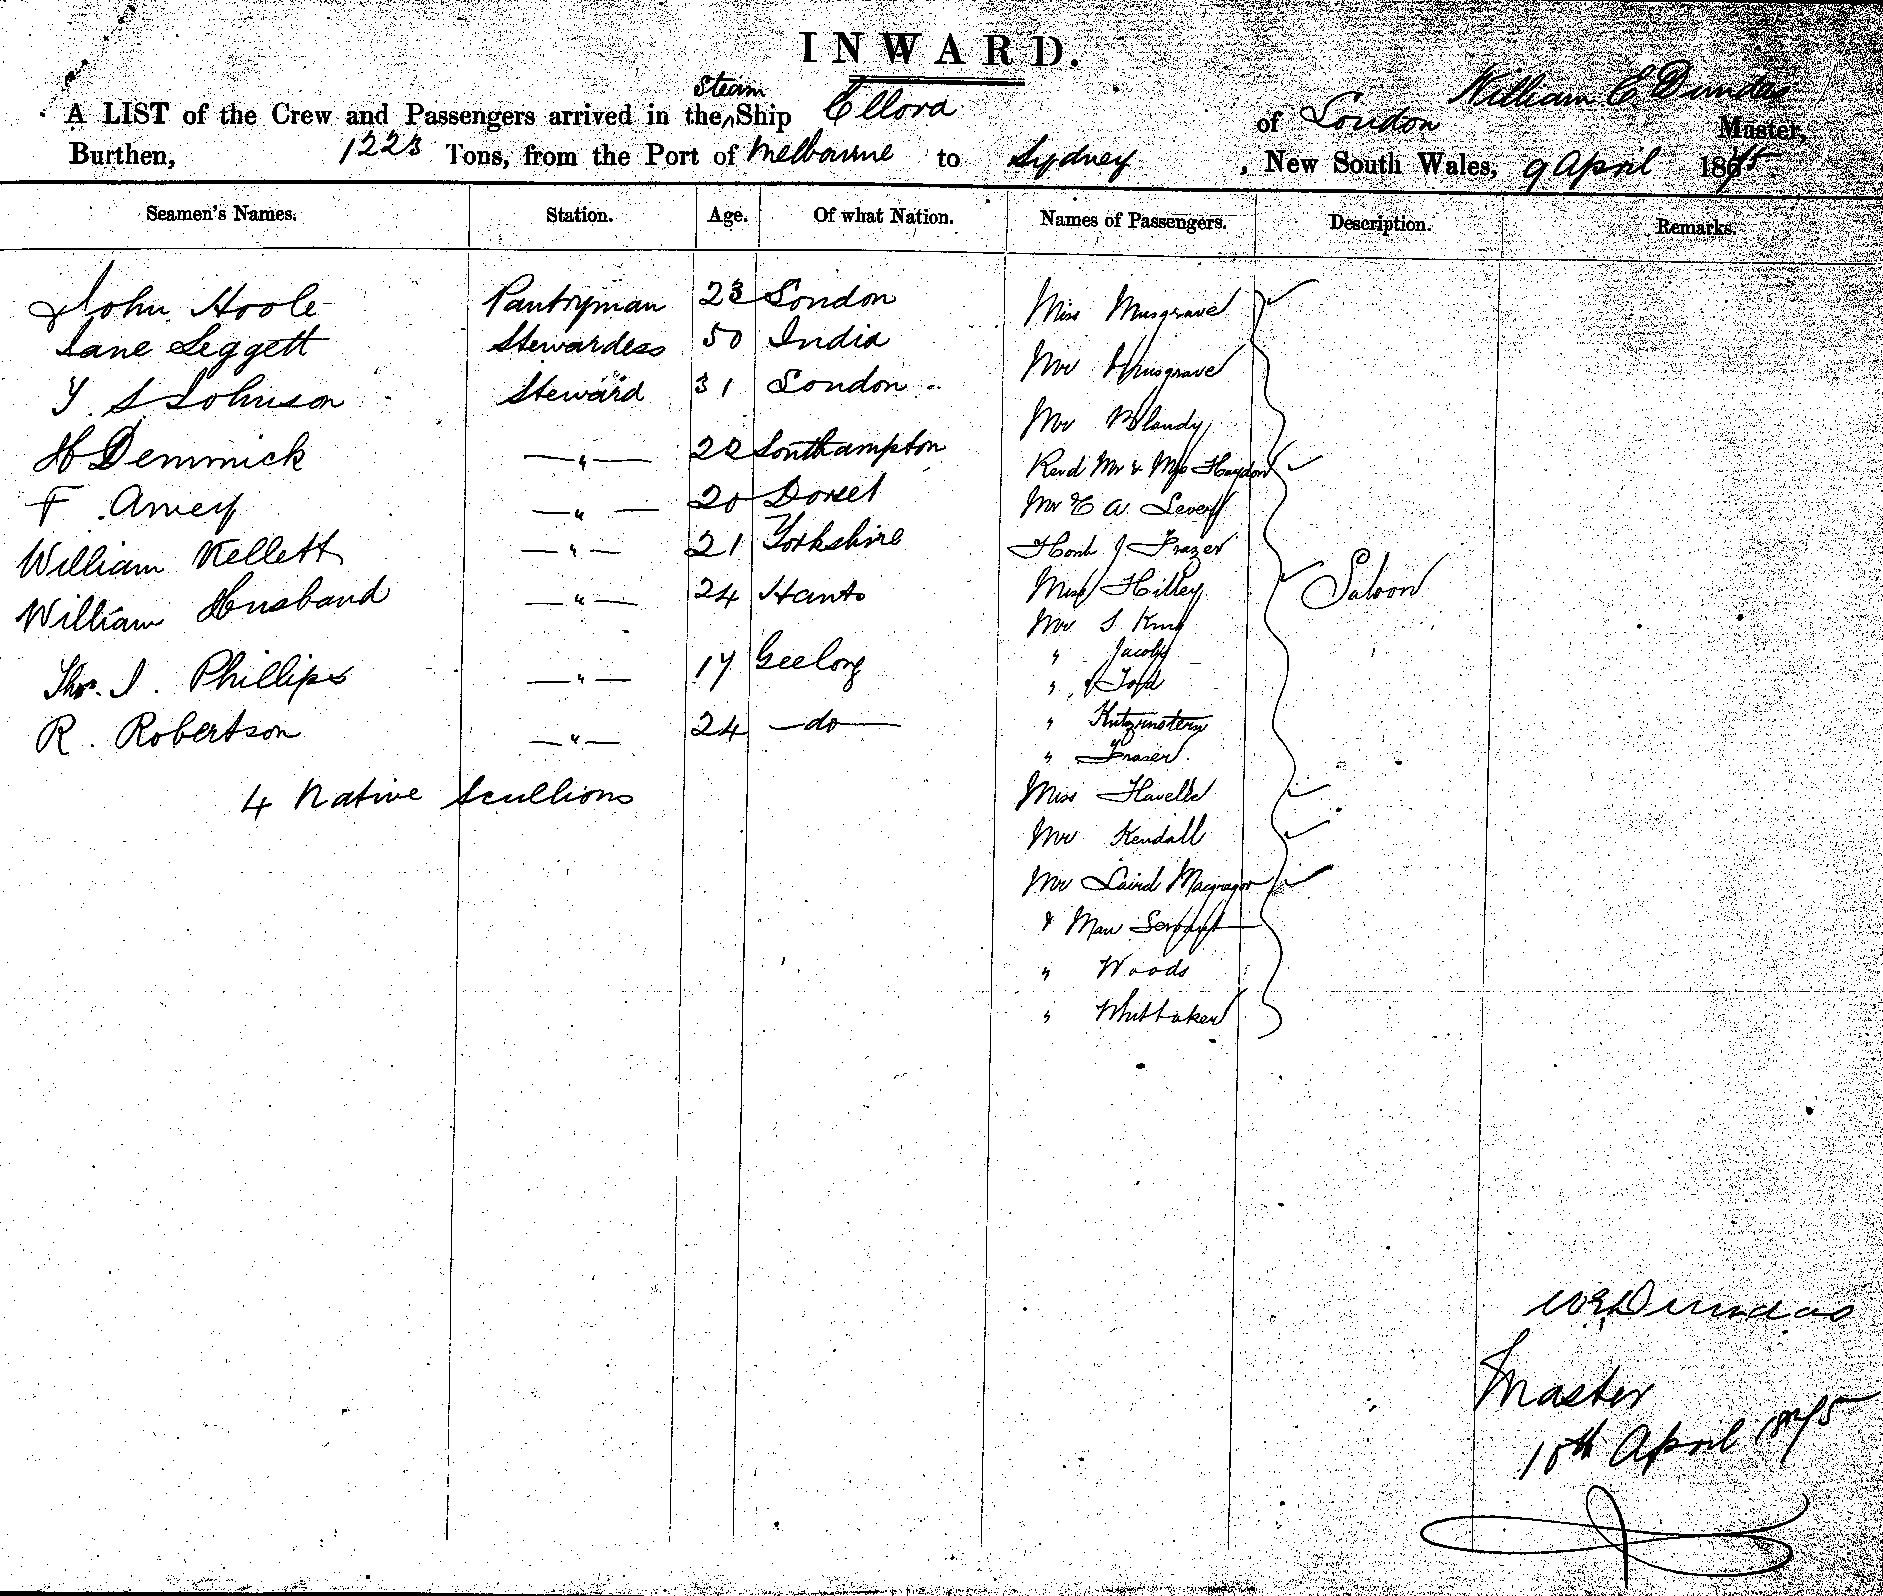 INWARD.
A LIST of the Crew and Passengers arrived in the Steam Ship Ellora of London William E Dundas Master,
Burthen, 1223 Tons, from the Port of Melbourne to Sydney, New South Wales, 9 April 1875
Seamen's Names. Station. Age. Of what Nation. Names of Passengers. Description. Remarks.
John Hoole Pantryman 23 London Miss Musgrave
Jane Leggett Stewardess 50 India Mr Musgrave
Y. S Johnson Steward 31 London Mr Blandy
H Demmick — " — 22 Southampton Revd Mr & Mrs Haydon
F. Amey — " — 20 Dorset Mr E A. Levey
William Kellett — " — 21 Yorkshire Honl J Frazer
William Husband — " — 24 Hants Miss Hilley Saloon
Mr S King
" Jacoby
Thos. I. Phillips — " — 17 Geelong " Todd
R. Robertson — " — 24 — do —
" Fraser
4 Native Scullions Miss Havelle
Mr Kendall
Mr Laird Macgregor
& Man Servant
" Woods
" Whittaker
W E Dundas
Master
10th April 1875